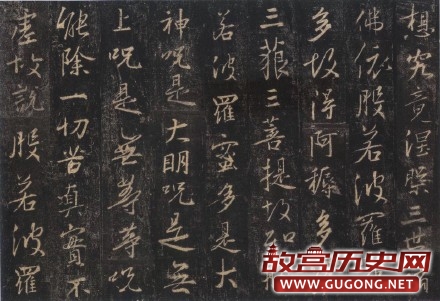 想究竟涅槃三世
佛依般若波羅
多故得阿耨多
三藐三菩提故知
若波羅蜜多是大
神呪是大明呪是無
上呪是無等等呪
能除一切苦真實不
虛故說般若波羅
故宫历史网
WWW.GUGONG.NET